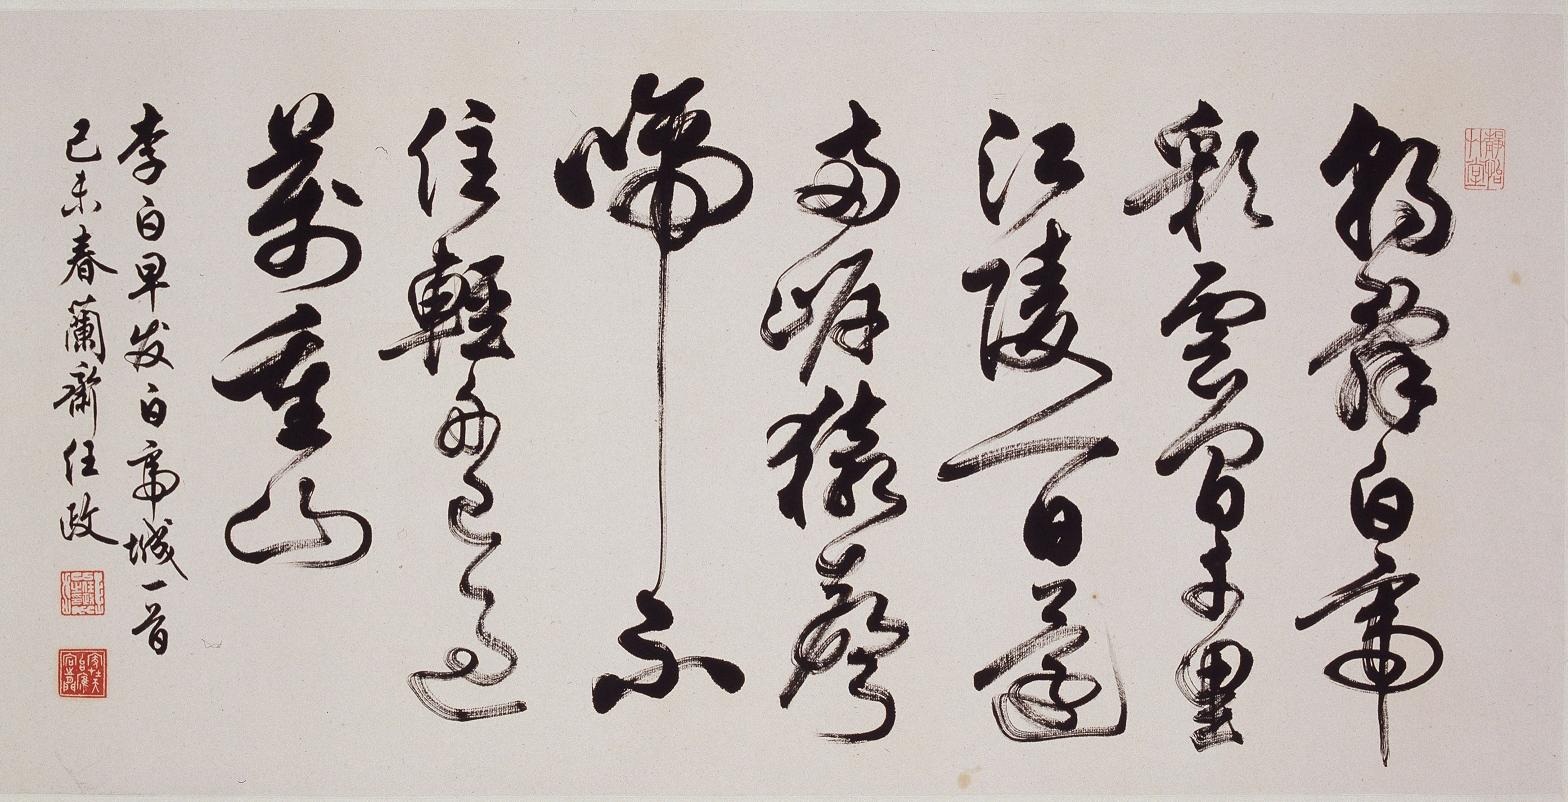 朝辭白帝
彩雲間千里
江陵一日還
兩岸猿聲
啼不
住輕舟已過
萬重山
李白早发白帝城一首
己未春蘭齋任政